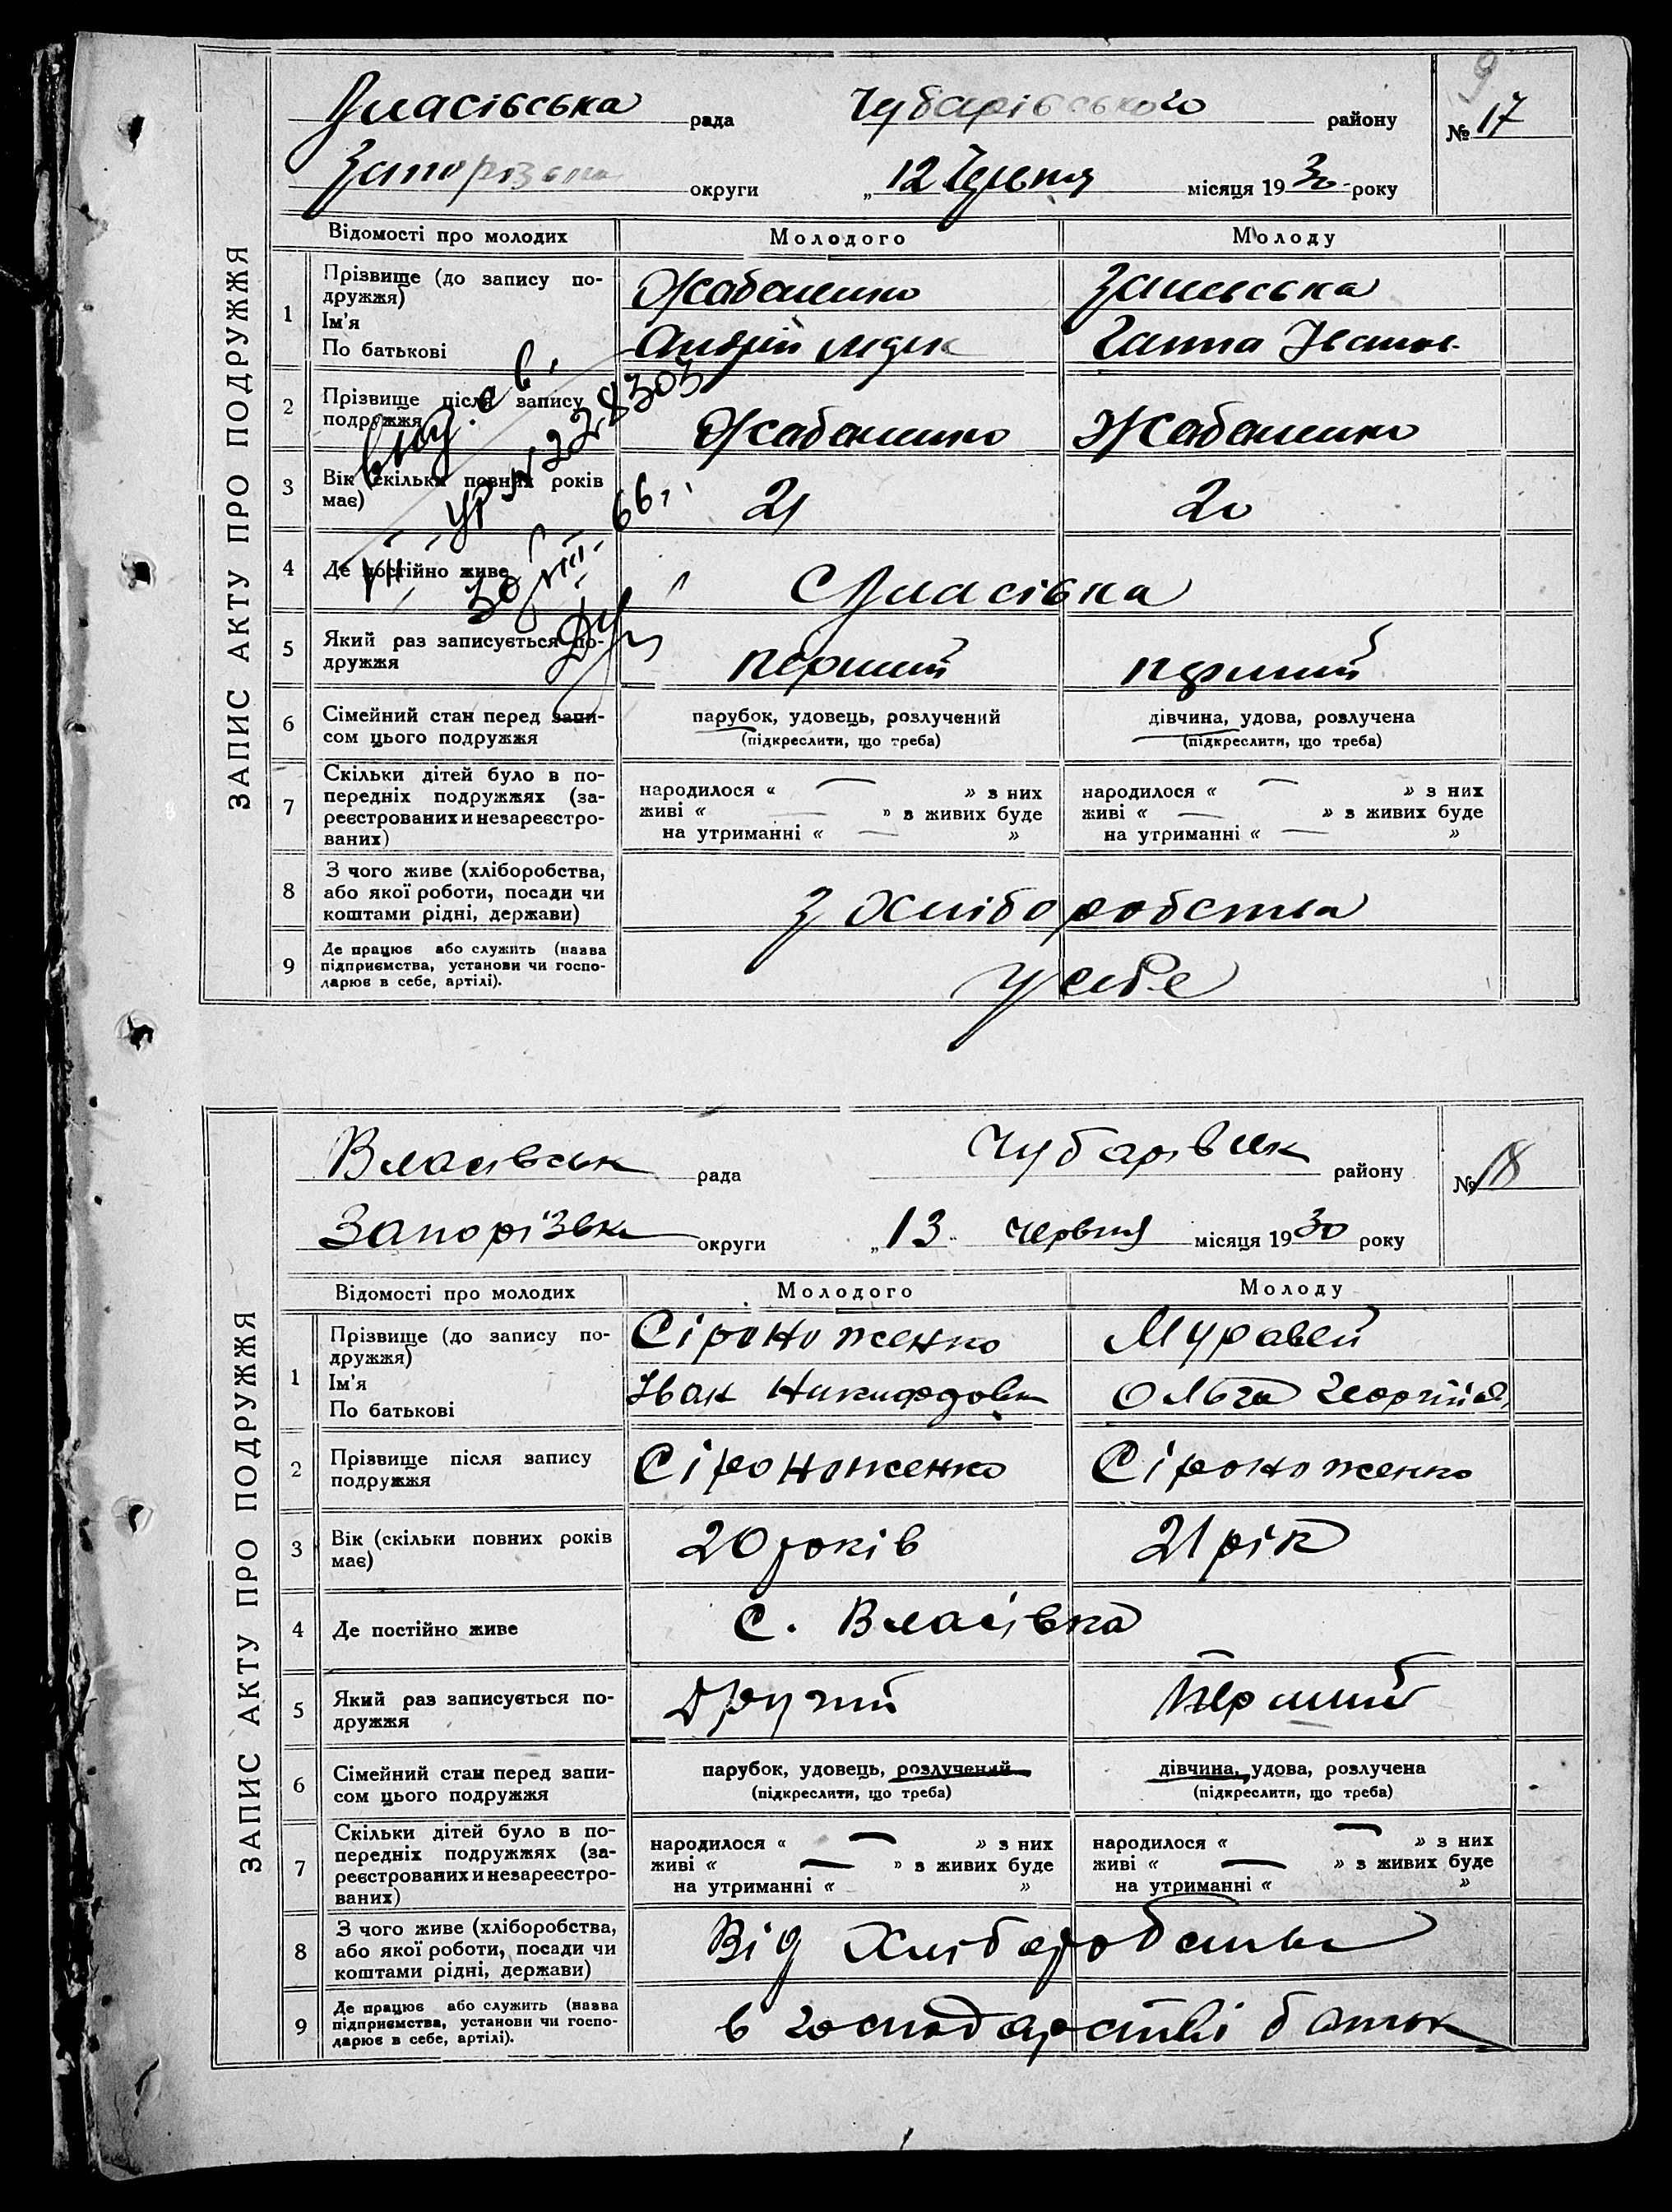 9
ЗАПИС АКТУ ПРО ПОДРУЖЖЯ
Власівська рада Чубарівського району № 17
Запорізька округи „ 12 Червня місяця 1930 року
Відомості про молодих Молодого Молоду
1 Прізвище (до запису по-
дружжя)
Ім'я
По батькові
Жабаленко Заневська
Андрій Ганна Іванов.
2 Прізвище після запису
подружжя
Жабаленко Жабаленко
3 Вік (скільки повних років
має)
21 20
4 Де постійно живе
С Власівка
5 Який раз записується по-
дружжя
перший перший
6 Сімейний стан перед запи-
сом цього подружжя
парубок, удовець, розлучений
(підкреслити, що треба)
дівчина, удова, розлучена
(підкреслити, що треба)
7 Скільки дітей було в по-
передніх подружжях (за-
реєстрованих и незареєстро-
ваних)
народилося « — » з них
живі « — » з живих буде
на утриманні « — »
народилося « — » з них
живі « — » з живих буде
на утриманні « — »
8 З чого живе (хліборобства,
або якої роботи, посади чи
коштами рідні, держави)
З хліборобства
9 Де працює або служить (назва
підприємства, установи чи госпо-
дарює в себе, артілі).
У себе
вид. св.
УР № 228305
30/VIII 66 г.
ЗАПИС АКТУ ПРО ПОДРУЖЖЯ
Власівськ рада Чубарівськ району № 18
Запорізьк округи „ 13 " червня місяця 1930 року
Відомості про молодих Молодого Молоду
1 Прізвище (до запису по-
дружжя)
Ім'я
По батькові
Сіроноженко Муравей
Іван Никифорович Ольга Георгіїв
2 Прізвище після запису
подружжя
Сіроноженко Сіроноженко
3 Вік (скільки повних років
має)
20 років 21 рік
4 Де постійно живе
С. Власівка
5 Який раз записується по-
дружжя
Другий Перший
6 Сімейний стан перед запи-
сом цього подружжя
парубок, удовець, розлучений
(підкреслити, що треба)
дівчина, удова, розлучена
(підкреслити, що треба)
7 Скільки дітей було в по-
передніх подружжях (за-
реєстрованих и незареєстро-
ваних)
народилося « — » з них
живі « — » з живих буде
на утриманні « »
народилося « — » з них
живі « — » з живих буде
на утриманні « »
8 З чого живе (хліборобства,
або якої роботи, посади чи
коштами рідні, держави)
Від хліборобства
9 Де працює або служить (назва
підприємства, установи чи госпо-
дарює в себе, артілі).
в господарстві батьк